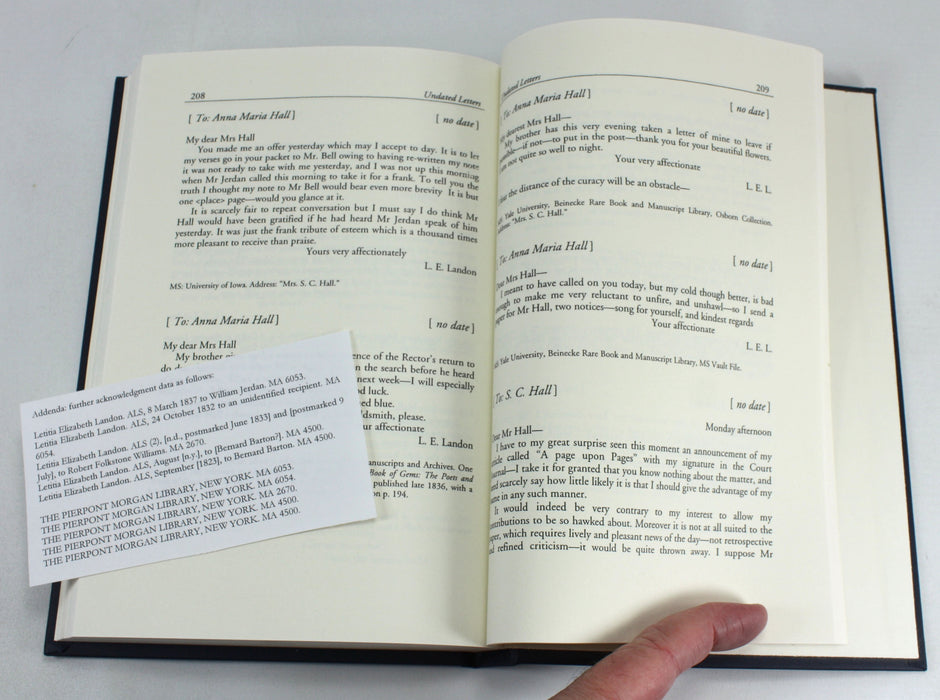 208
Undated Letters
[ To: Anna Maria Hall ]
[ no date ]
My dear Mrs Hall
You made me an offer yesterday which may I accept to day. It is to let
my verses go in your packet to Mr. Bell owing to having re-written my note
it was not ready to take with me yesterday, and I was not up this morning
when Mr Jerdan called this morning to take it for a frank. To tell you the
truth I thought my note to Mr Bell would bear even more brevity It is but
one <place> page—would you glance at it.
It is scarcely fair to repeat conversation but I must say I do think Mr
Hall would have been gratified if he had heard Mr Jerdan speak of him
yesterday. It was just the frank tribute of esteem which is a thousand times
more pleasant to receive than praise.
Yours very affectionately
L. E. Landon
MS: University of Iowa. Address: "Mrs. S. C. Hall."
[ To: Anna Maria Hall ]
[ no date ]
My dear Mrs Hall
My brother
of the Rector's return to
the search before he heard
next week—I will especially
luck.
blue.
please.
affectionate
L. E. Landon
and Archives. One
Book of Gems: The Poets and
published late 1836, with a
p. 194.
Addenda: further acknowledgment data as follows:
Letitia Elizabeth Landon. ALS, 8 March 1837 to William Jerdan. MA 6053.
Letitia Elizabeth Landon. ALS, 24 October 1832 to an unidentified recipient. MA
6054.
Letitia Elizabeth Landon. ALS (2), [n.d., postmarked June 1833] and [postmarked 9
July], to Robert Folkstone Williams. MA 2670.
Letitia Elizabeth Landon. ALS, August [n.y.], to [Bernard Barton?]. MA 4500.
Letitia Elizabeth Landon. ALS, September [1823], to Bernard Barton. MA 4500.
THE PIERPONT MORGAN LIBRARY, NEW YORK. MA 6053.
THE PIERPONT MORGAN LIBRARY, NEW YORK. MA 6054.
THE PIERPONT MORGAN LIBRARY, NEW YORK. MA 2670.
THE PIERPONT MORGAN LIBRARY, NEW YORK. MA 4500.
THE PIERPONT MORGAN LIBRARY, NEW YORK. MA 4500.
Undated Letters
209
To: Anna Maria Hall ]
[ no date ]
dearest Mrs Hall—
My brother has this very evening taken a letter of mine to leave if
not—to put in the post—thank you for your beautiful flowers.
not quite so well to night.
Your very affectionate
L. E. L.
the distance of the curacy will be an obstacle—
Yale University, Beinecke Rare Book and Manuscript Library, Osborn Collection.
"Mrs. S. C. Hall."
To: Anna Maria Hall ]
[ no date ]
Dear Mrs Hall—
I meant to have called on you today, but my cold though better, is bad
to make me very reluctant to unfire, and unshawl—so I send a
for Mr Hall, two notices—song for yourself, and kindest regards
Your affectionate
L. E. L.
Yale University, Beinecke Rare Book and Manuscript Library, MS Vault File.
To: S. C. Hall ]
[ no date ]
Monday afternoon
Dear Mr Hall—
I have to my great surprise seen this moment an announcement of my
called "A page upon Pages" with my signature in the Court
I take it for granted that you know nothing about the matter, and
scarcely say how little likely it is that I should give the advantage of my
in any such manner.
It would indeed be very contrary to my interest to allow my
to be so hawked about. Moreover it is not at all suited to the
which requires lively and pleasant news of the day—not retrospective
refined criticism—it would be quite thrown away. I suppose Mr